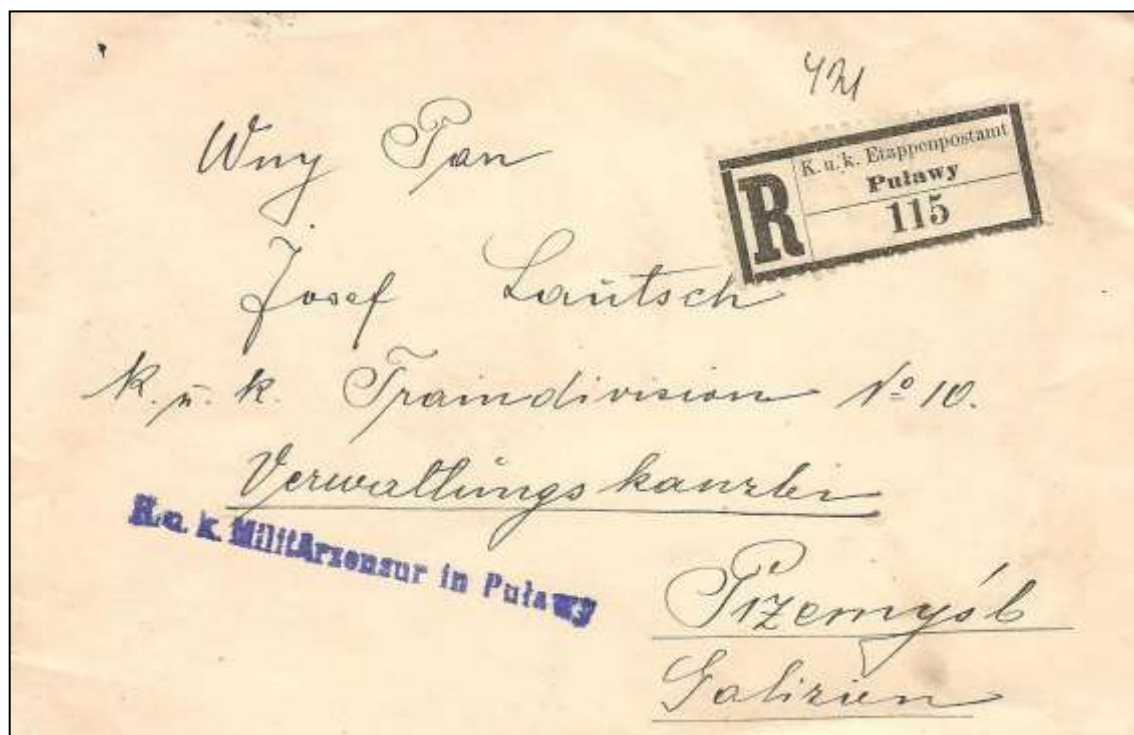 Wny Pan
K. u. k. Etappenpostamt
Puławy
R 115
Josef Lautsch
k. u. k. Traindivision No 10.
Verwaltungskanzlei
K. u. k. MilitArzensur in Puławy
Przemyśl
Galizien